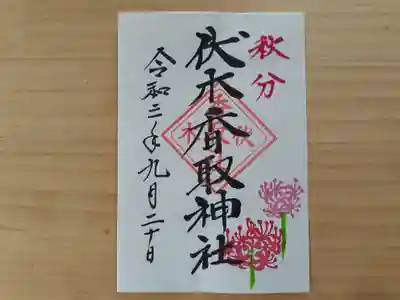 秋分
伏木香取神社
令和三年九月二十日